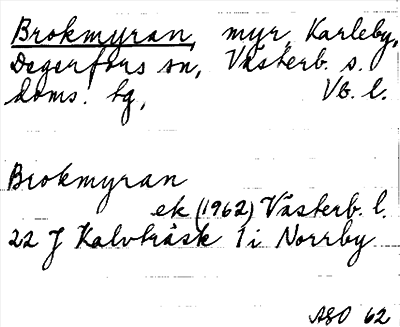 Brokmyran, myr, Karleby,
Degerfors sn, Västerb. s.
doms. tg, Vb. l.
Brokmyran
ek (1962) Västerb. l.
22 J Kalvträsk 1 i Norrby
ASO 62